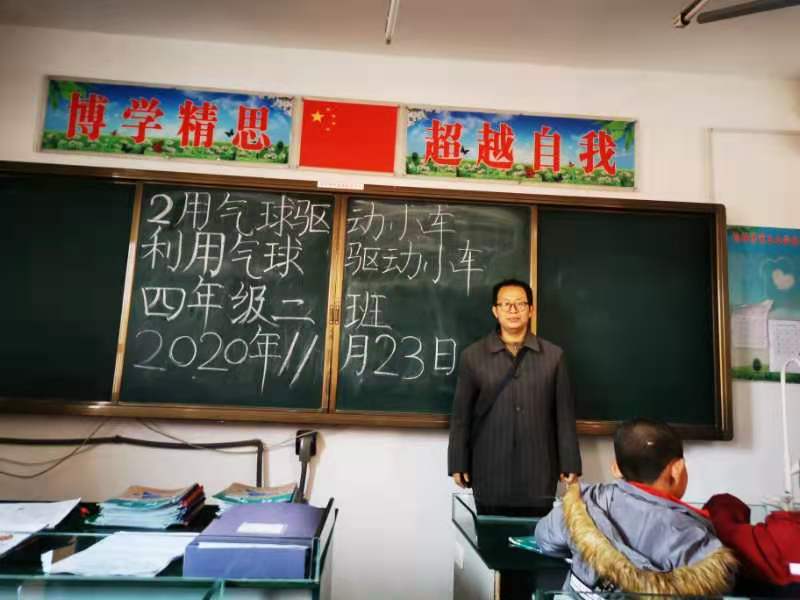 博学精思
超越自我
2用气球驱动小车
利用气球驱动小车
四年级二班
2020年11月23日